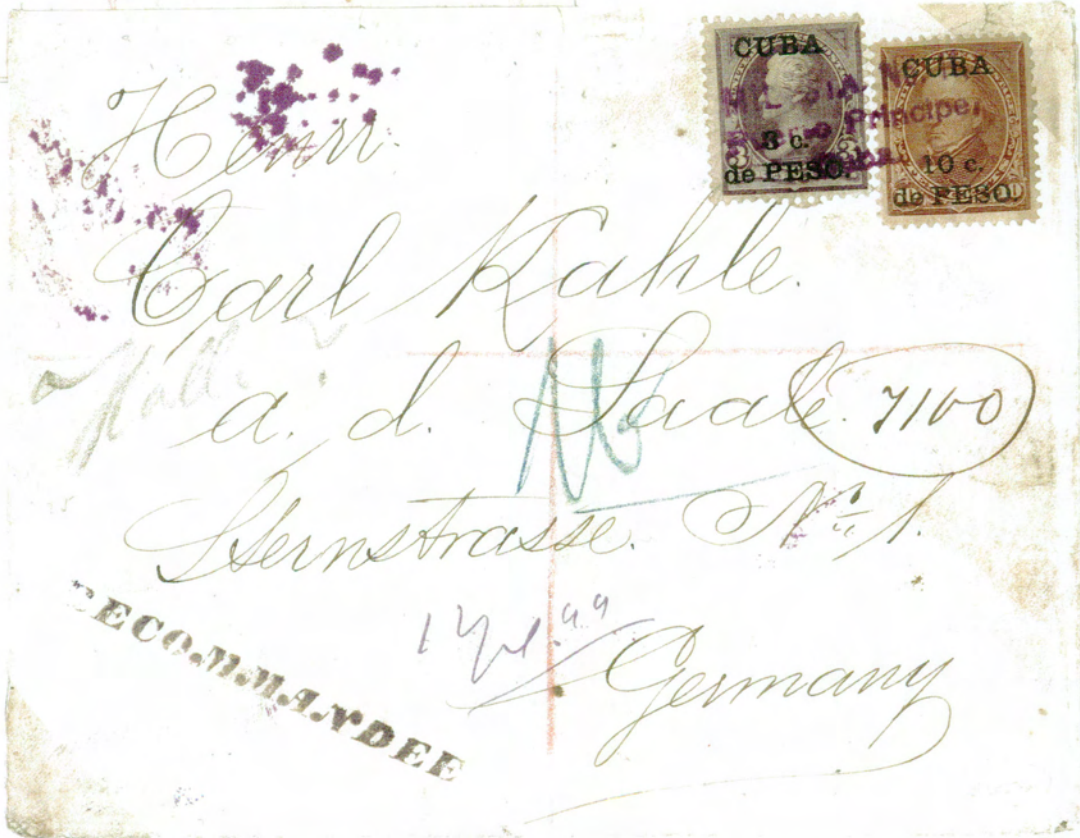 CUBA
3 c.
de PESO.
CUBA
10 c.
de PESO.
Principe,
Herrr.
Carl Kahle.
a. d. Saale. 7100
No
Sternstrasse. No 1.
Germany
RECOMMANDEE